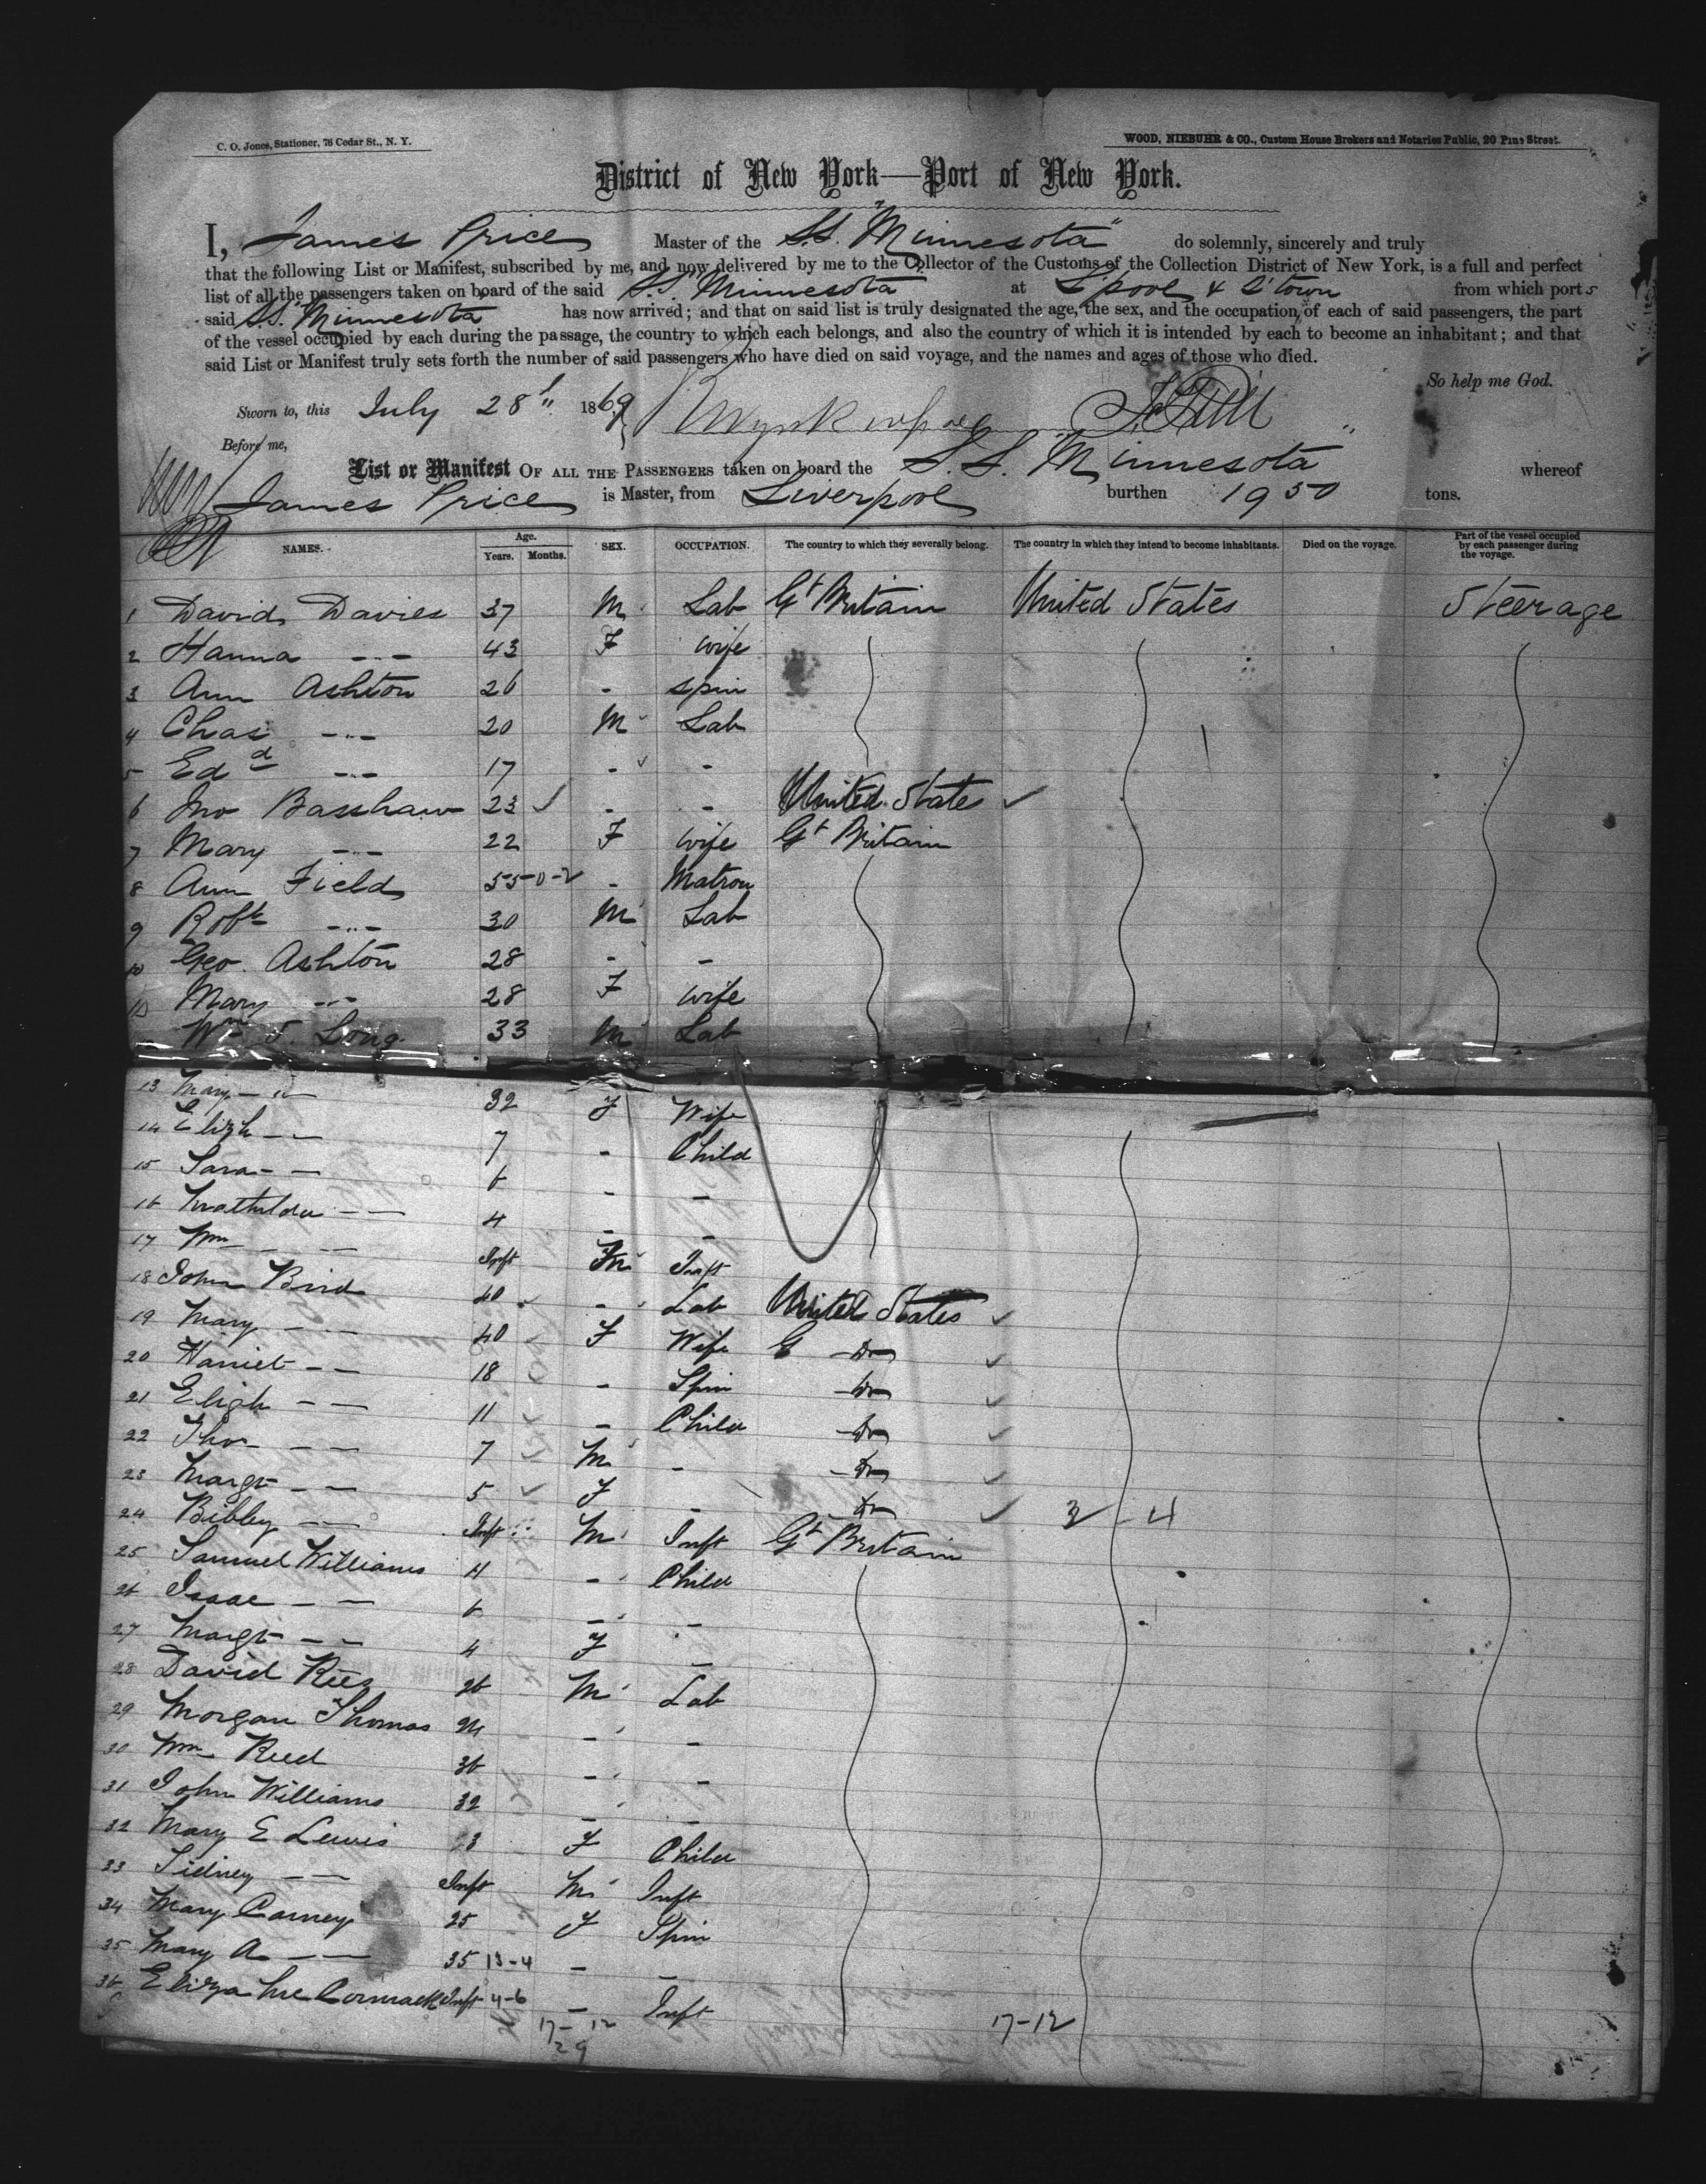 C. O. Jones, Stationer, 76 Cedar St., N. Y.
WOOD, NIEBUHR & CO., Custom House Brokers and Notaries Public, 20 Pine Street.
District of New York—Port of New York.
I, James Price Master of the S.S. "Minnesota" do solemnly, sincerely and truly
that the following List or Manifest, subscribed by me, and now delivered by me to the Collector of the Customs of the Collection District of New York, is a full and perfect
list of all the passengers taken on board of the said S.S. Minnesota at L'pool & Q'town from which ports
said S.S. "Minnesota" has now arrived; and that on said list is truly designated the age, the sex, and the occupation, of each of said passengers, the part
of the vessel occupied by each during the passage, the country to which each belongs, and also the country of which it is intended by each to become an inhabitant; and that
said List or Manifest truly sets forth the number of said passengers who have died on said voyage, and the names and ages of those who died.
So help me God.
Sworn to, this July 28th 1869
Before me,
List or Manifest OF ALL THE PASSENGERS taken on board the S.S. "Minnesota" whereof
James Price is Master, from Liverpool burthen 1950 tons.
NAMES. Age. Years. Months. SEX. OCCUPATION. The country to which they severally belong. The country in which they intend to become inhabitants. Died on the voyage. Part of the vessel occupied by each passenger during the voyage.
1 David Davies 37 M Lab Gt Britain United States Steerage
2 Hanna -"- 43 F wife
3 Ann Ashton 26 - spin
4 Chas -"- 20 M Lab
5 Edd -"- 17 - -
6 Jno Basshaw 23 ✓ - - United States ✓
7 Mary -"- 22 F wife Gt Britain
8 Ann Field 55-0-2 - Matron
9 Robt -"- 30 M Lab
10 Geo. Ashton 28 - -
11 Mary -"- 28 F wife
Wm S. Long 33 M Lab
13 Mary -"- 32 F Wife
14 Elizh - - 7 - Child
15 Sara - - 6 - -
16 Mathilda - - 4 - -
17 Wm - - Inft M Inft
18 John Bird 40 - Lab United States ✓
19 Mary - - 40 F Wife G Do ✓
20 Harriet - - 18 - Spin Do ✓
21 Elizh - - 11 ✓ - Child Do ✓
22 Thos - - 7 ✓ M - Do ✓
23 Margt - - 5 ✓ F - Do ✓ 3 - 4
24 Bibby - - Inft M Inft Gt Britain
25 Samuel Williams 11 - Child
26 Isaac - - 6 - -
27 Margt - - 4 F -
28 David Rees 26 M Lab
29 Morgan Thomas 24 - -
30 Wm Reed 36 - -
31 John Williams 32 - -
32 Mary E Lewis 3 F Child
33 Sidney - - Inft M Inft
34 Mary Carney 25 F Spin
35 Mary A - - 35 13-4 - -
36 Eliza McCormack Inft 4-6 - Inft
17-12 17-12
29